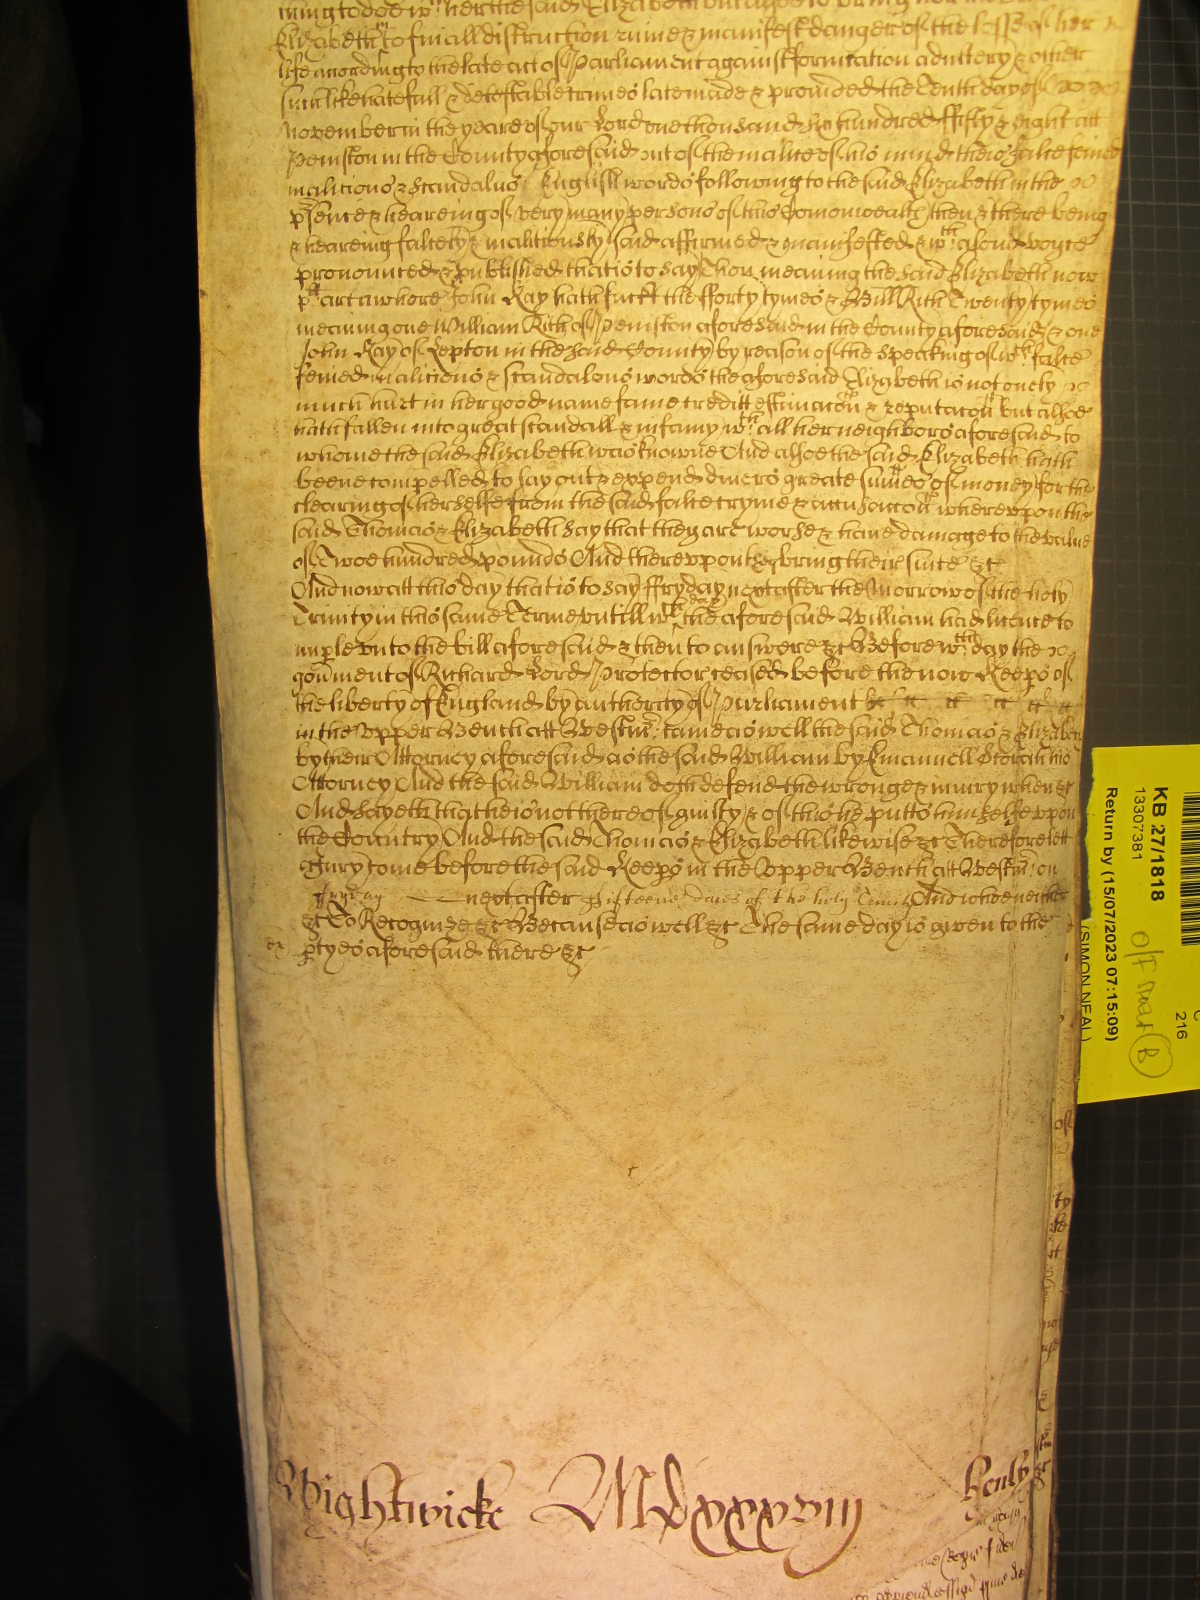 to doe wth her the said Elizabeth but alsoe to bring her
Elizabeth to finall distruction ruine & manifest danger of the losse of her
life according to the late act of Parliament against fornication adultery & other
such like hatefull & detestable crimes late made & provided the Tenth day of
November in the yeare of our Lord one thousand six hundred ffifty & eight att
Peniston in the County aforesaid out of the malice of his mind theis false feined
malicious & scandalus English words following to the said Elizabeth in the
p'sence & heareing of very many persons of this Comonwealth then & there being
& heareing falsely & malitiously said affirmed & manifested & wth a loud voyce
pronounced & published that is to say Thou meaning the said Elizabeth now
pft art a whore John Kay hath fuckt thee fforty tymes & Will Rich Twenty tymes
meaning one William Rich of Peniston aforesaid in the County aforesaid & one
John Kay of Lepton in the said County by reason of the speaking of wch false
feined malicious & scandalous words the aforesaid Elizabeth is not onely
much hurt in her good name fame creditt estimacon & reputacon but alsoe
hath fallen into great scandall & infamy wth all her neighbors aforesaid to
whome the said Elizabeth was knowne And alsoe the said Elizabeth hath
beene compelled to lay out & expend divers greate sumes of money for the
clearing of herselfe from the said false cryme & accusacon whereupon the
said Thomas & Elizabeth say that they are worse & have damage to the value
of Twoe hundred pounds And thereupon they bring their suite &c
And now att this day that is to say ffryday next after the Morrow of the holy
Trinity in this same Terme untill wch day the aforesaid William had licence to
imple unto the bill aforesaid & then to answere &c Before wch day the
govment of Richard Lord Protector ceased before the now Keeps of
the liberty of England by authority of Parliament
in the Upper Bench att Westmr came as well the said Thomas & Elizabeth
by their Attorney aforesaid as the said William by Emanuell his
Attorney And the said William doth defend the wrong & iniury when &c
And sayeth that he is not thereof guilty & of this he putts himselfe upon
the Country And the said Thomas & Elizabeth likewise &c Therefore lett
a Jury come before the said Keeps in the Upper Bench att Westmr on
next after fifteene dayes of the holy Trinity And who neither
&c To Recognize &c Because as well &c The same day is given to the
ptyes aforesaid there &c
Wightwicke Mdxxxviij
Henly
KB 27/1818
13307381
Return by (15/07/2023 07:15:09)
(SIMON NEAL)
216
B